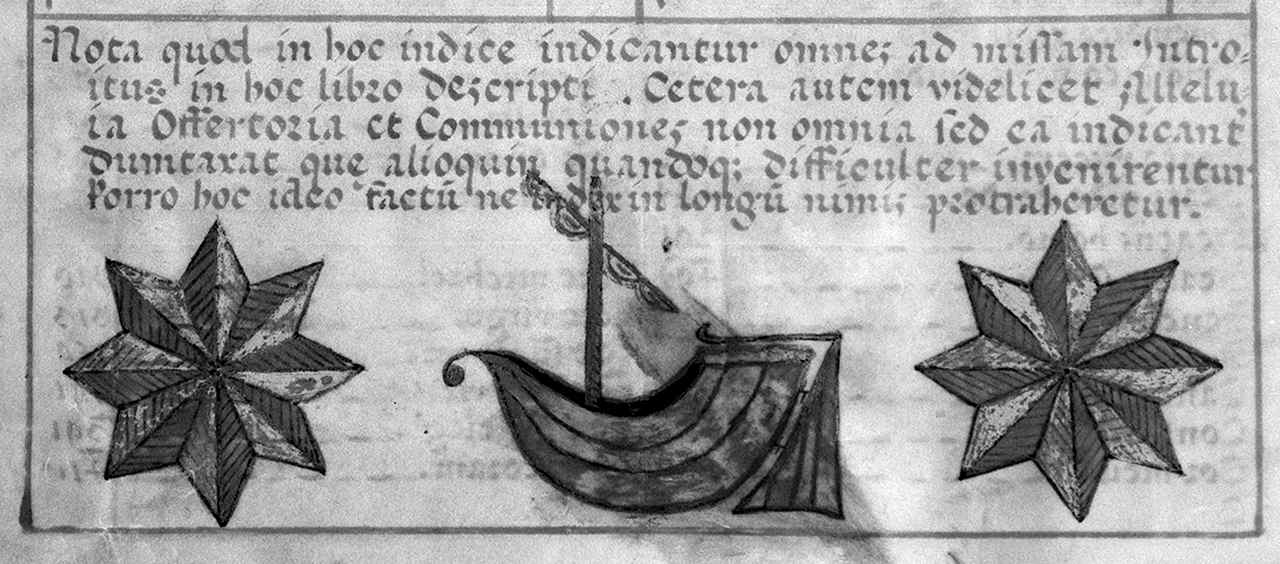 Nota quod in hoc indice indicantur omnes ad missam Intro-
itus in hoc libro descripti. Cetera autem videlicet Allelu-
ia Offertoria et Communiones non omnia sed ea indicant̃
dumtaxat que alioquin quandoq; difficulter invenirentur
Porro hoc ideo factū ne index in longū nimis protraheretur.